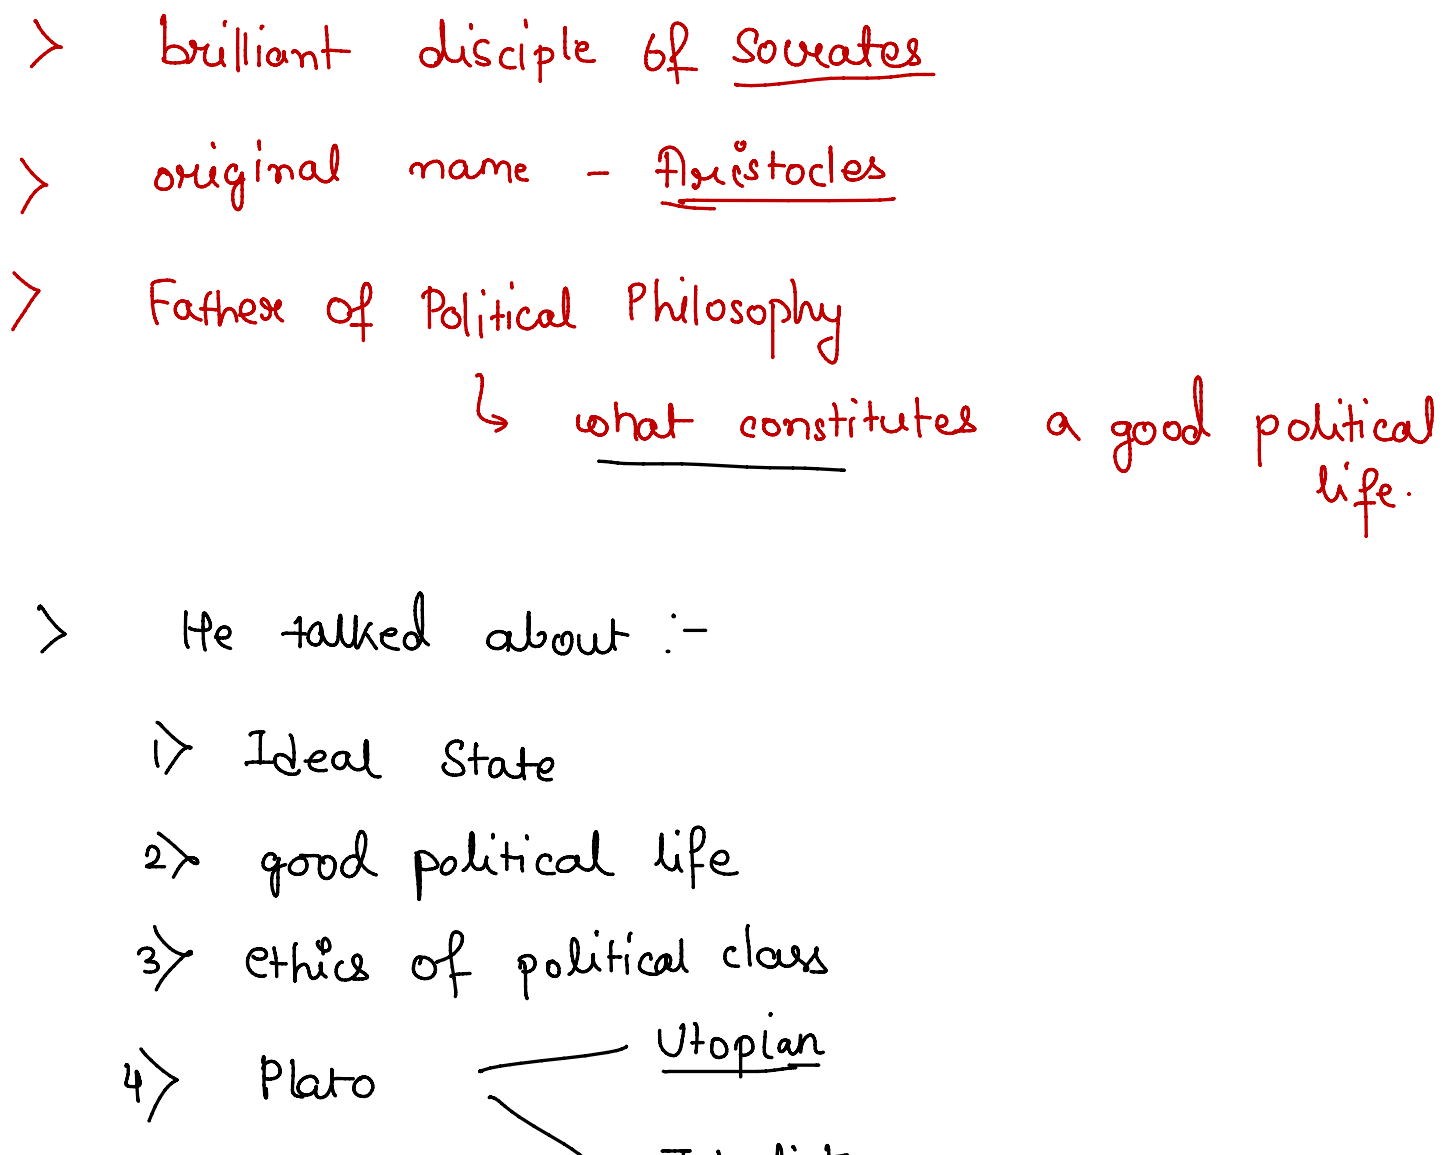 > brilliant disciple of Socrates
> original name - Aristocles
> Father of Political Philosophy
↳ what constitutes a good political
life.
> He talked about :-
1> Ideal State
2> good political life
3> ethics of political class
4> Plato
Utopian